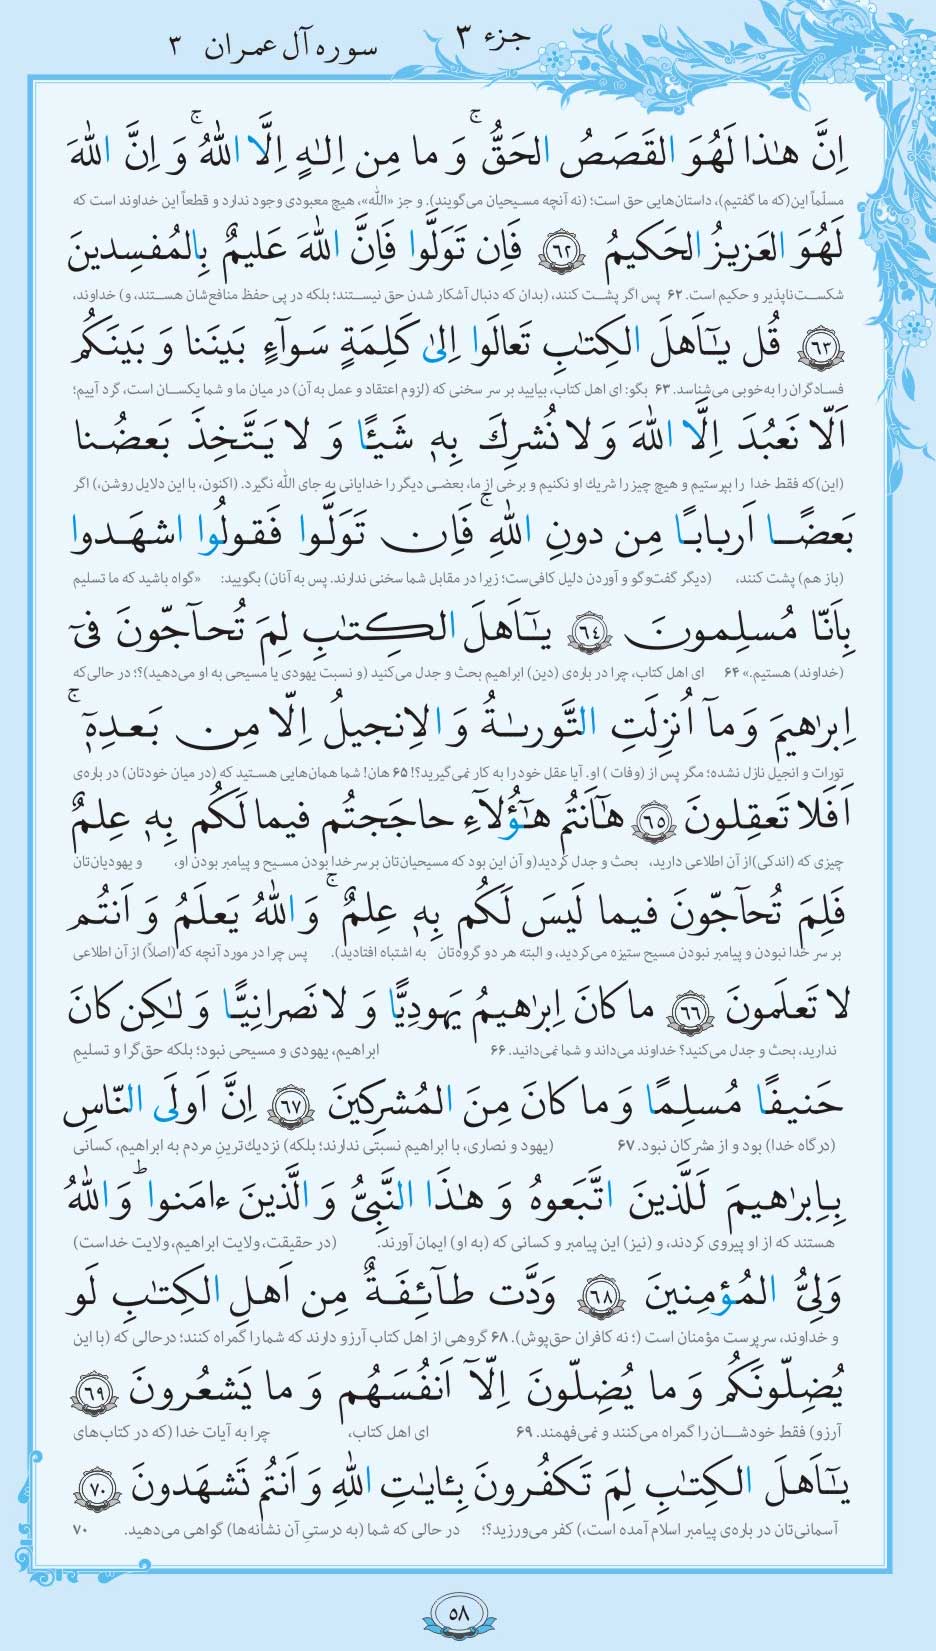 جزء ۳
سوره آل عمران ۳
اِنَّ هـٰذا لَهُوَ القَصَصُ الحَقُّ ۚ وَ ما مِن اِلـٰهٍ اِلَّا اللهُ ۚ وَ اِنَّ اللهَ
مسلّماً این(که ما گفتیم)، داستان‌هایی حق است؛ (نه آنچه مسیحیان می‌گویند). و جز «اللّه»، هیچ معبودی وجود ندارد و قطعاً این خداوند است که
لَهُوَ العَزیزُ الحَکیمُ ﴿٦٢﴾ فَاِن تَوَلَّوا فَاِنَّ اللهَ عَلیمٌ بِالمُفسِدینَ
شکست‌ناپذیر و حکیم است. ۶۲ پس اگر پشت کنند، (بدان که دنبال آشکار شدن حق نیستند؛ بلکه در پی حفظ منافع‌شان هستند، و) خداوند،
﴿٦٣﴾ قُل یـٰۤاَهلَ الکِتـٰبِ تَعالَوا اِلیٰ کَلِمَةٍ سَوآءٍ بَینَنا وَ بَینَکُم
فسادگران را به‌خوبی می‌شناسد. ۶۳ بگو: ای اهل کتاب، بیایید بر سر سخنی که (لزوم اعتقاد و عمل به آن) در میان ما و شما یکسان است، گرد آییم؛
اَلّا نَعبُدَ اِلَّا اللهَ وَ لا نُشرِكَ بِهٖ شَیـًٔا وَ لا یَتَّخِذَ بَعضُنا
(این)که فقط خدا را بپرستیم و هیچ چیز را شریك او نکنیم و برخی از ما، بعضی دیگر را خدایانی به جای اللّه نگیرد. (اکنون، با این دلایل روشن،) اگر
بَعضًا اَربابًا مِن دونِ اللهِ ۚ فَاِن تَوَلَّوا فَقولُوا اشهَدوا
(باز هم) پشت کنند، (دیگر گفت‌وگو و آوردن دلیل کافی‌ست؛ زیرا در مقابل شما سخنی ندارند. پس به آنان) بگویید: «گواه باشید که ما تسلیم
بِاَنّا مُسلِمونَ ﴿٦٤﴾ یـٰۤاَهلَ الکِتـٰبِ لِمَ تُحآجّونَ فیۤ
(خداوند) هستیم.» ۶۴ ای اهل کتاب، چرا در باره‌ی (دین) ابراهیم بحث و جدل می‌کنید (و نسبت یهودی یا مسیحی به او می‌دهید)؟؛ در حالی‌که
اِبرٰهیمَ وَ مآ اُنزِلَتِ التَّورىٰةُ وَ الاِنجیلُ اِلّا مِن بَعدِهٖۤ ۚ
تورات و انجیل نازل نشده؛ مگر پس از (وفات) او. آیا عقل خود را به کار نمی‌گیرید؟! ۶۵ هان! شما همان‌هایی هستید که (در میان خودتان) در باره‌ی
اَفَلا تَعقِلونَ ﴿٦٥﴾ هـٰۤاَنتُم هـٰۤؤُلآءِ حاجَجتُم فیما لَکُم بِهٖ عِلمٌ
چیزی که (اندکی)از آن اطلاعی دارید، بحث و جدل کردید(و آن این بود که مسیحیان‌تان بر سر خدا بودن مسیح و پیامبر بودن او، و یهودیان‌تان
فَلِمَ تُحآجّونَ فیما لَیسَ لَکُم بِهٖ عِلمٌ ۚ وَ اللهُ یَعلَمُ وَ اَنتُم
بر سر خدا نبودن و پیامبر نبودن مسیح ستیزه می‌کردید، و البته هر دو گروه‌تان به اشتباه افتادید). پس چرا در مورد آنچه که (اصلاً) از آن اطلاعی
لا تَعلَمونَ ﴿٦٦﴾ ما کانَ اِبرٰهیمُ یَهودِیًّا وَ لا نَصرانِیًّا وَ لـٰکِن کانَ
ندارید، بحث و جدل می‌کنید؟ خداوند می‌داند و شما نمی‌دانید. ۶۶ ابراهیم، یهودی و مسیحی نبود؛ بلکه حق‌گرا و تسلیمِ
حَنیفًا مُسلِمًا وَ ما کانَ مِنَ المُشرِکینَ ﴿٦٧﴾ اِنَّ اَولَی النّاسِ
(درگاه خدا) بود و از مشرکان نبود. ۶۷ (یهود و نصاری، با ابراهیم نسبتی ندارند؛ بلکه) نزدیك‌ترینِ مردم به ابراهیم، کسانی
بِاِبرٰهیمَ لَلَّذینَ اتَّبَعوهُ وَ هـٰذَا النَّبِیُّ وَ الَّذینَ ءامَنوا ؕ وَ اللهُ
هستند که از او پیروی کردند، و (نیز) این پیامبر و کسانی که (به او) ایمان آورند. (در حقیقت، ولایت ابراهیم، ولایت خداست)
وَلِیُّ المُؤمِنینَ ﴿٦٨﴾ وَدَّت طآئِفَةٌ مِن اَهلِ الکِتـٰبِ لَو
و خداوند، سرپرست مؤمنان است (؛ نه کافران حق‌پوش). ۶۸ گروهی از اهل کتاب آرزو دارند که شما را گمراه کنند؛ درحالی که (با این
یُضِلّونَکُم وَ ما یُضِلّونَ اِلّآ اَنفُسَهُم وَ ما یَشعُرونَ ﴿٦٩﴾
آرزو) فقط خودشان را گمراه می‌کنند و نمی‌فهمند. ۶۹ ای اهل کتاب، چرا به آیات خدا (که در کتاب‌های
یـٰۤاَهلَ الکِتـٰبِ لِمَ تَکفُرونَ بِـٔایـٰتِ اللهِ وَ اَنتُم تَشهَدونَ ﴿٧٠﴾
آسمانی‌تان در باره‌ی پیامبر اسلام آمده است،) کفر می‌ورزید؟؛ در حالی که شما (به درستیِ آن نشانه‌ها) گواهی می‌دهید. ۷۰
۵۸